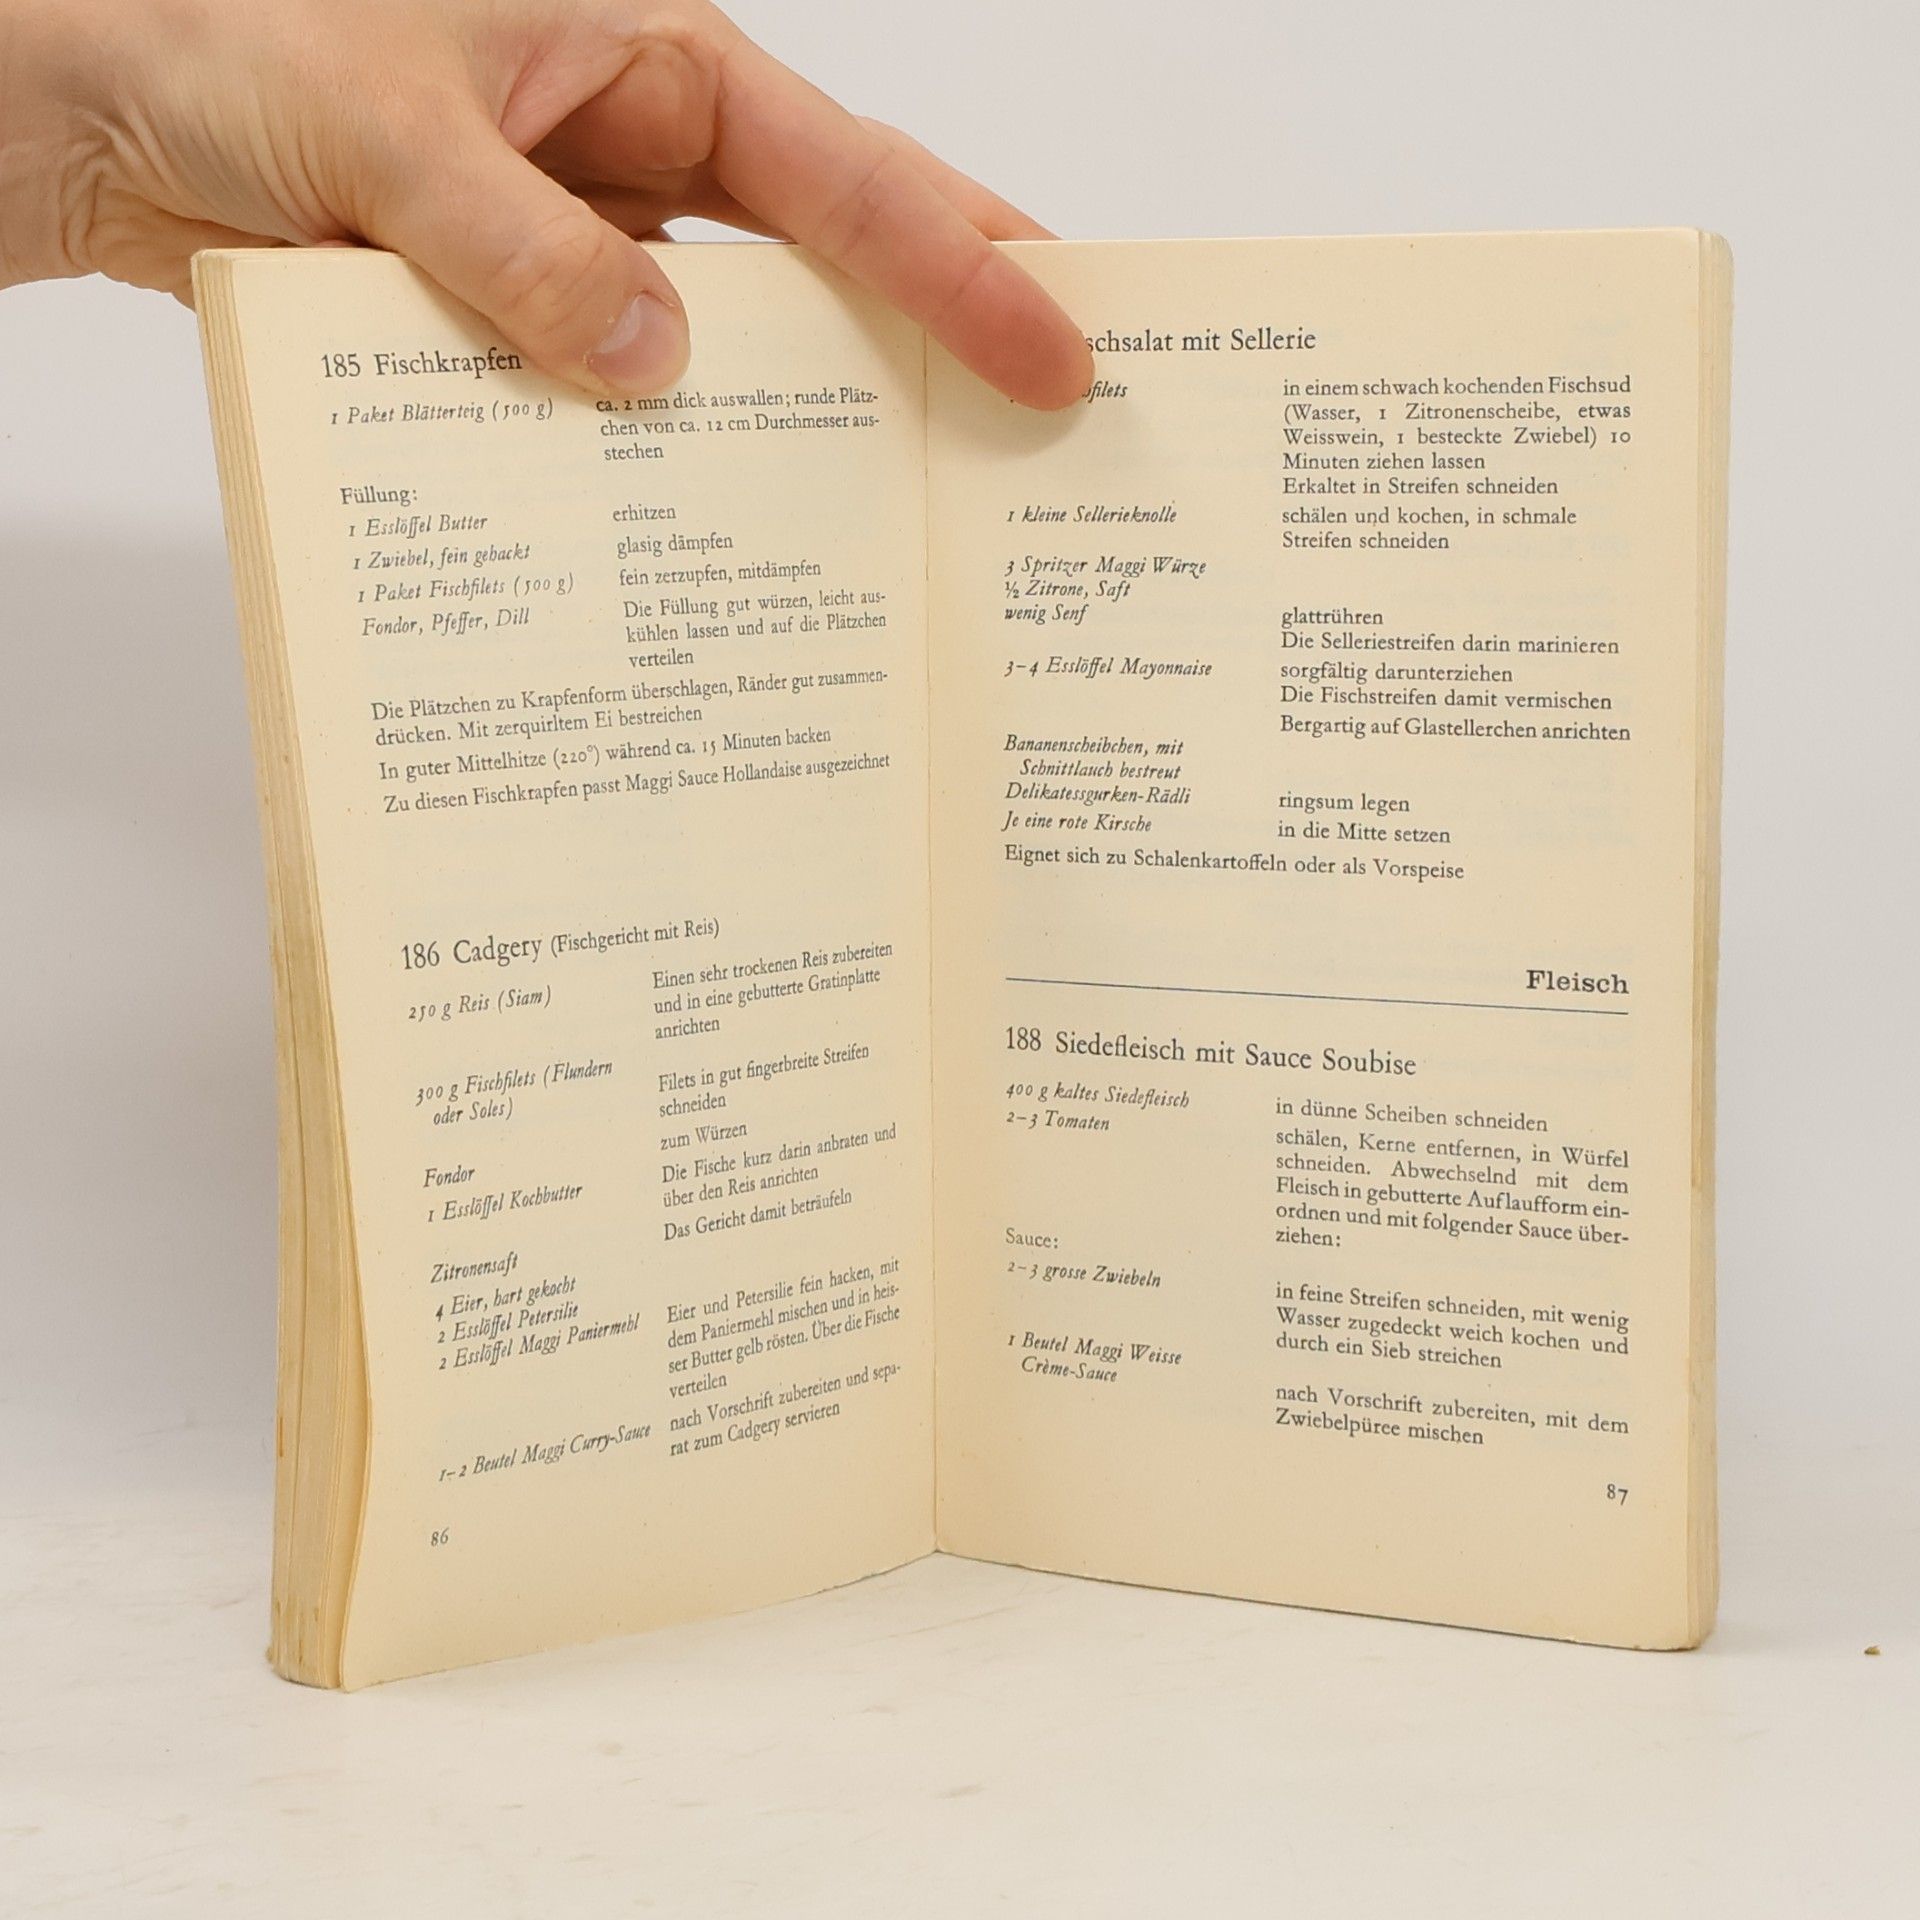 185 Fischkrapfen
1 Paket Blätterteig (500 g)
ca. 2 mm dick auswallen; runde Plätz-
chen von ca. 12 cm Durchmesser aus-
stechen
Füllung:
1 Esslöffel Butter
erhitzen
1 Zwiebel, fein gehackt
glasig dämpfen
1 Paket Fischfilets (500 g)
fein zerzupfen, mitdämpfen
Fondor, Pfeffer, Dill
Die Füllung gut würzen, leicht aus-
kühlen lassen und auf die Plätzchen
verteilen
Die Plätzchen zu Krapfenform überschlagen, Ränder gut zusammen-
drücken. Mit zerquirltem Ei bestreichen
In guter Mittelhitze (220°) während ca. 15 Minuten backen
Zu diesen Fischkrapfen passt Maggi Sauce Hollandaise ausgezeichnet
186 Cadgery (Fischgericht mit Reis)
250 g Reis (Siam)
Einen sehr trockenen Reis zubereiten
und in eine gebutterte Gratinplatte
anrichten
300 g Fischfilets (Flundern
oder Soles)
Filets in gut fingerbreite Streifen
schneiden
Fondor
zum Würzen
1 Esslöffel Kochbutter
Die Fische kurz darin anbraten und
über den Reis anrichten
Zitronensaft
Das Gericht damit beträufeln
4 Eier, hart gekocht
2 Esslöffel Petersilie
2 Esslöffel Maggi Paniermehl
Eier und Petersilie fein hacken, mit
dem Paniermehl mischen und in heis-
ser Butter gelb rösten. Über die Fische
verteilen
1–2 Beutel Maggi Curry-Sauce
nach Vorschrift zubereiten und sepa-
rat zum Cadgery servieren
86
mit Sellerie
in einem schwach kochenden Fischsud
(Wasser, 1 Zitronenscheibe, etwas
Weisswein, 1 besteckte Zwiebel) 10
Minuten ziehen lassen
Erkaltet in Streifen schneiden
1 kleine Sellerieknolle
schälen und kochen, in schmale
Streifen schneiden
3 Spritzer Maggi Würze
½ Zitrone, Saft
wenig Senf
glattrühren
Die Selleriestreifen darin marinieren
3–4 Esslöffel Mayonnaise
sorgfältig darunterziehen
Die Fischstreifen damit vermischen
Bergartig auf Glastellerchen anrichten
Bananenscheibchen, mit
Schnittlauch bestreut
Delikatessgurken-Rädli
ringsum legen
Je eine rote Kirsche
in die Mitte setzen
Eignet sich zu Schalenkartoffeln oder als Vorspeise
Fleisch
188 Siedefleisch mit Sauce Soubise
400 g kaltes Siedefleisch
in dünne Scheiben schneiden
2–3 Tomaten
schälen, Kerne entfernen, in Würfel
schneiden. Abwechselnd mit dem
Fleisch in gebutterte Auflaufform ein-
ordnen und mit folgender Sauce über-
ziehen:
Sauce:
2–3 grosse Zwiebeln
in feine Streifen schneiden, mit wenig
Wasser zugedeckt weich kochen und
durch ein Sieb streichen
1 Beutel Maggi Weisse
Crème-Sauce
nach Vorschrift zubereiten, mit dem
Zwiebelpüree mischen
87